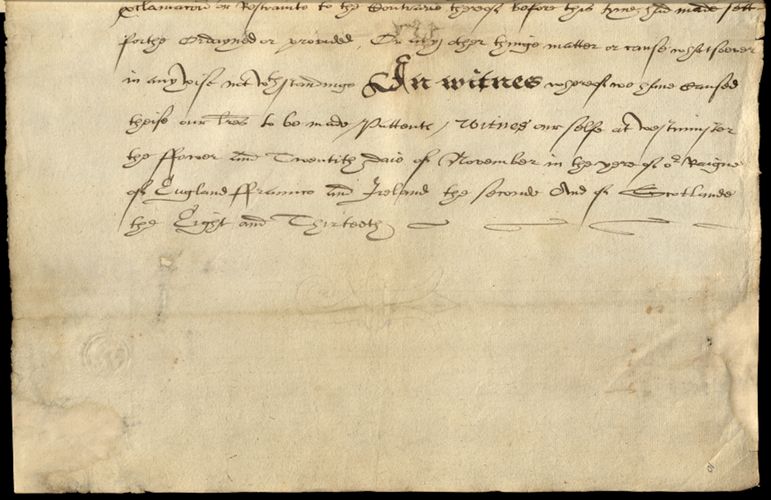 proclamacon or Restrainte to the Contrarie thereof before this tyme had made sett
forthe ordeyned or provided, Or any other thinge matter or cause whatsoever
in any wise notwthstandinge In witnes whereof we have caused
theise our lres to be made Pattente, Witnes our selfe at westminster
the ffower and Twentith daie of November in the yere of or Raigne
of England ffraunce and Ireland the seconde And of Scotlande
the Eight and Thirteeth